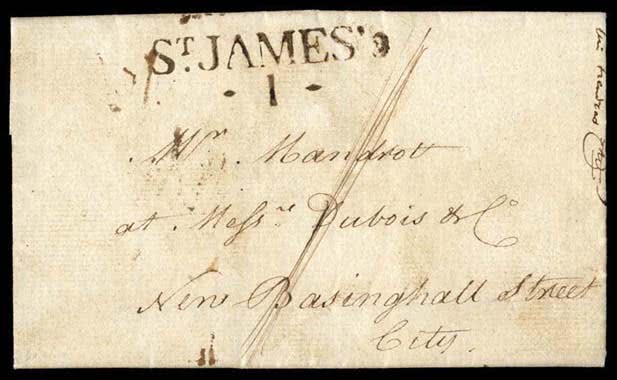 ST. JAMES's
· 1 ·
Mr. Mandrott
at Messrs. Dubois & Co
New Basinghall Street
City.